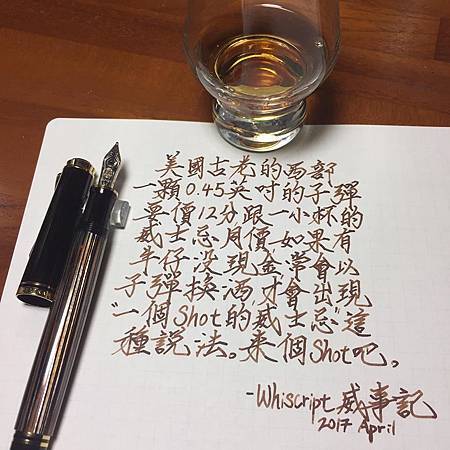 美國古老的西部
一顆0.45英吋的子彈
要價12分跟一小杯的
威士忌同價如果有
牛仔沒現金常會以
子彈換酒才會出現
"一個Shot的威士忌"這
種說法。來個Shot吧。
-Whiscript 威事記
2017 April